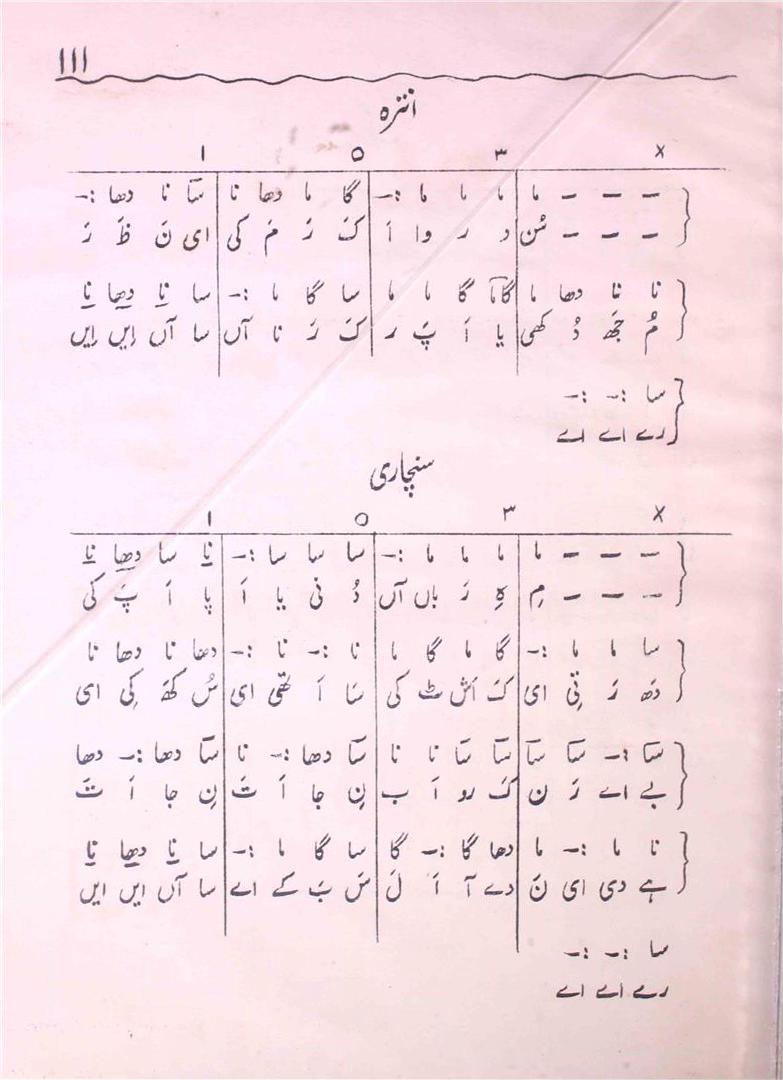 ۱۱۱
انترہ
× ۳ ० ۱
– – – ما ما ما ما :- گا ما دھا نا ساٰ نا دھا :-
– – – سُن د ر وا اَ کَ رَ مَ کی ای نَ ظَ رَ
نا نا دھا ما گاما گا ما ما سا گا ما :- سا نا دھا نا
مُ جھَ دُ کھی یا اَ پَ ر کَ رَ نا آں سا آں اِیں اِیں
سا :- :-
رے اے اے
سنچاری
× ۳ ० ۱
– – – ما ما ما ما :- سا سا سا :- نا سا دھا نا
– – – مِ ہِ رَ باں آں دُ نی یا اَ پا اَ پَ کی
سا ما ما :- گا ما گا ما نا :- نا :- دھا نا دھا نا
دَھ رَ تِی ای کَ اشٰ ٹ کی سَا اَ تھی ای سُ کھَ کِی ای
ساٰ :- ساٰ ساٰ ساٰ ساٰ نا نا ساٰ دھا :- نا ساٰ دھا :- دھا
بے اے رَ ن کَ رو اَ ب نِ جا اَ تَ نِ جا اَ تَ
نا ما :- ما دھا گا :- گا سا گا ما :- سا نا دھا نا
ہے دی ای نَ دے آ اَ لَ سَ بَ کے اے سا آں ایں ایں
سا :- :-
رے اے اے